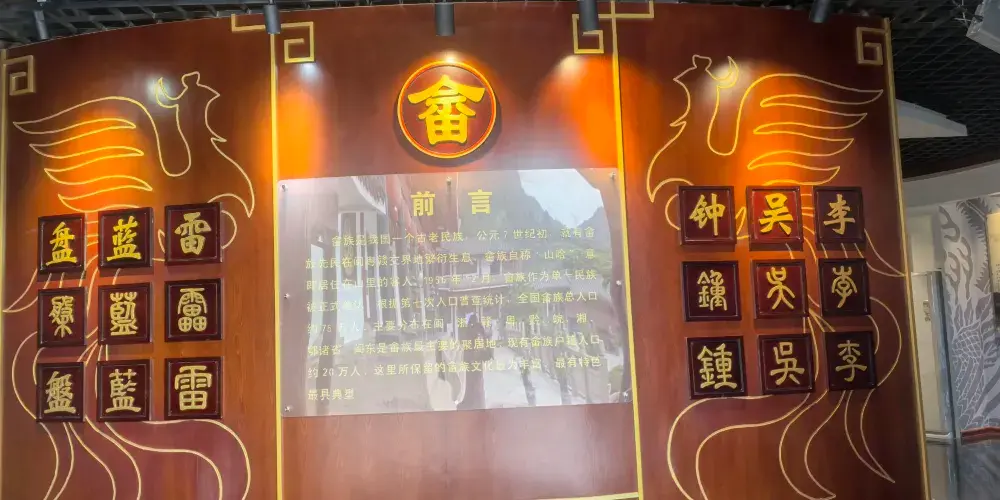 畲
盘 蓝 雷
盤 藍 雷
盤 藍 雷
前言
畲族是我国一个古老民族，公元7世纪初，就有畲
族先民在闽粤赣交界地繁衍生息。畲族自称“山哈”，意
即居住在山里的客人。1956年12月，畲族作为单一民族
被正式确认。根据第七次人口普查统计，全国畲族总人口
约75万人，主要分布在闽、浙、赣、粤、黔、皖、湘、
鄂诸省。闽东是畲族最主要的聚居地，现有畲族户籍人口
约20万人，这里所保留的畲族文化最为丰富、最有特色、
最具典型
钟 吴 李
鍾 吴 李
鍾 吴 李